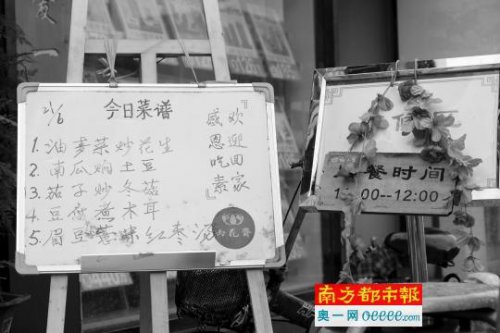 2/6
今日菜谱
1. 油麦菜炒花生
2. 南瓜焖土豆
3. 茄子炒冬菇
4. 豆腐煮木耳
5. 眉豆薏米红枣汤
欢迎回家
感恩吃素
雨花斋
餐时间
1:00--12:00
南方都市報
奥一网 oeeee.com